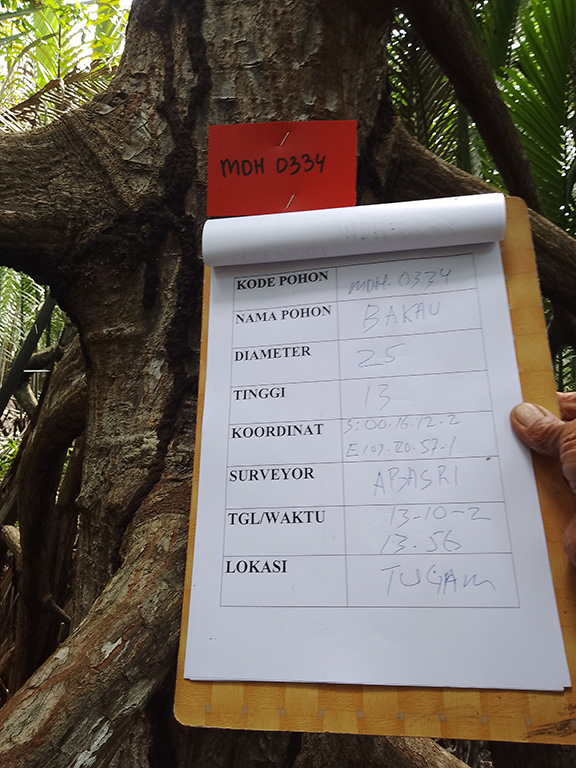 MDH 0334
KODE POHON MDH.0334
NAMA POHON BAKAU
DIAMETER 25
TINGGI 13
KOORDINAT S:00.16.12.2
E103.20.57.1
SURVEYOR ABASRI
TGL/WAKTU 13-10-2
13.56
LOKASI TUGAM